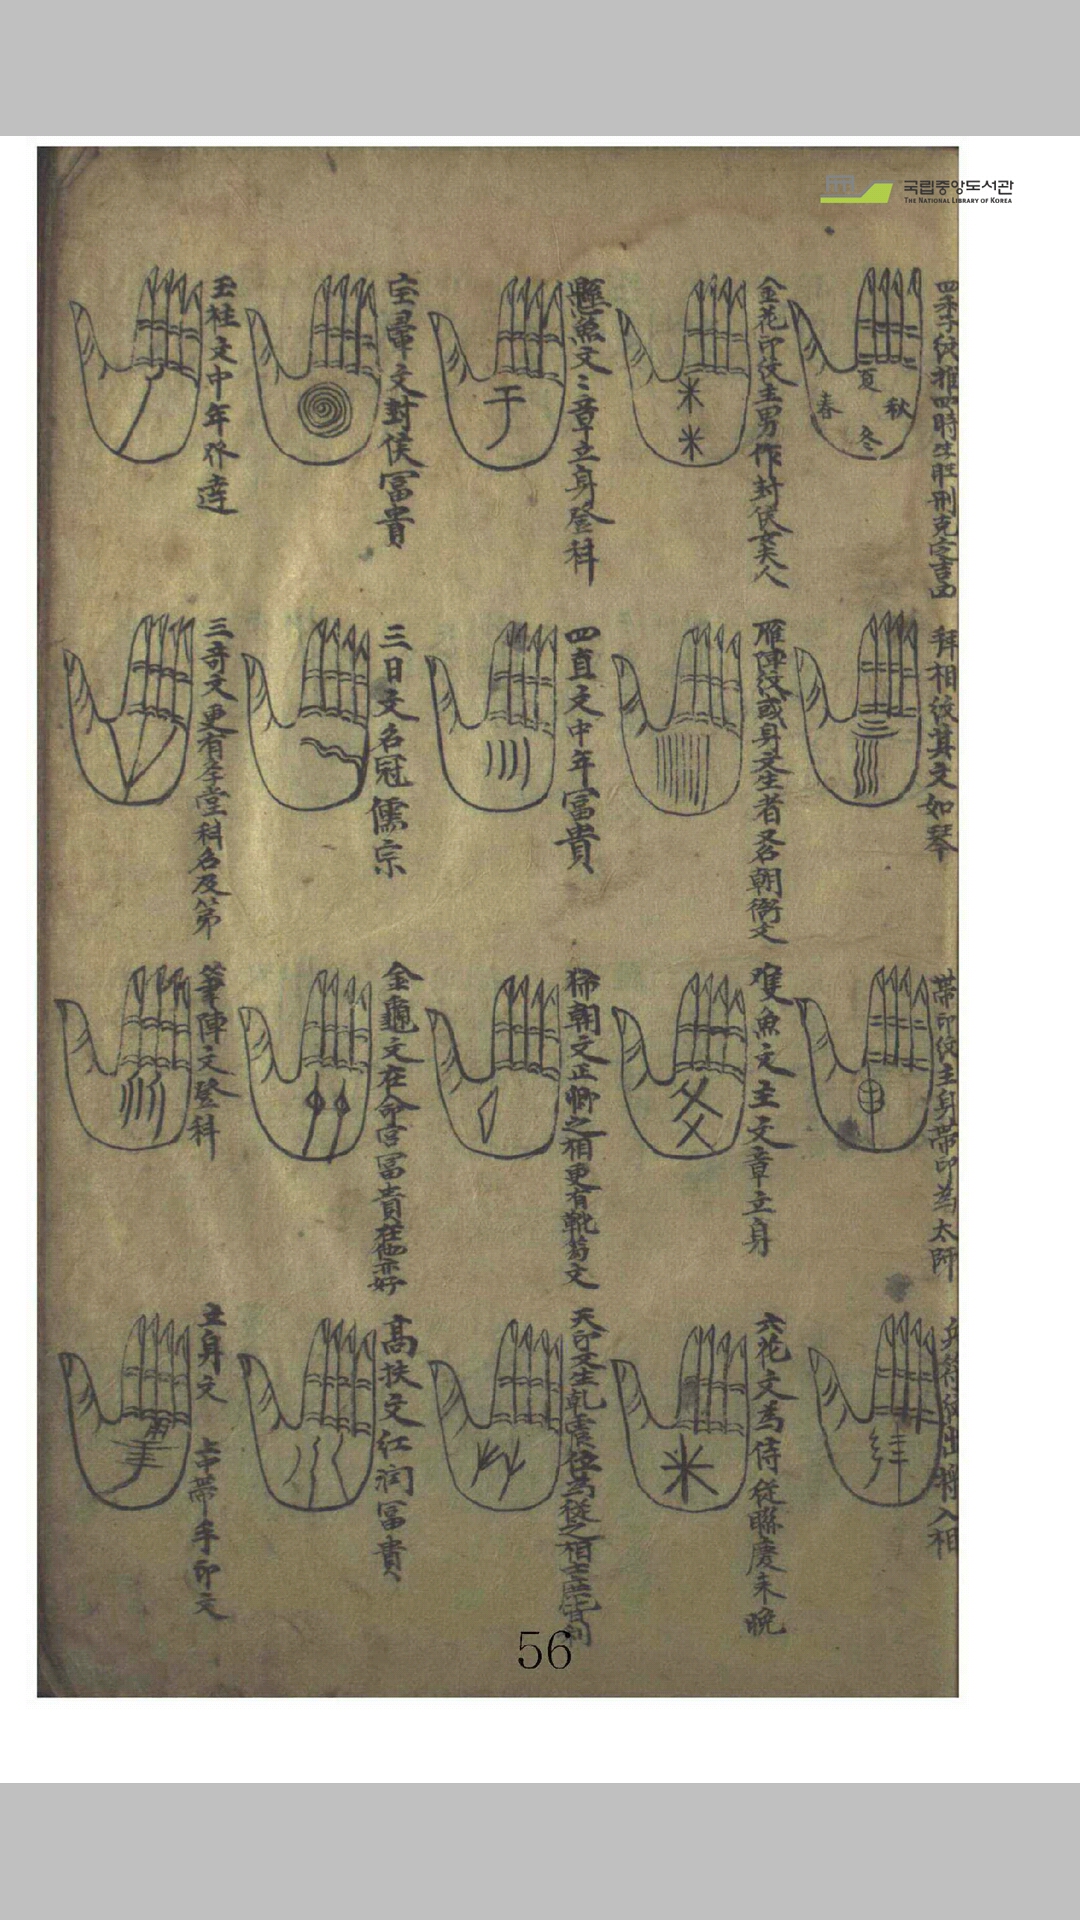 국립중앙도서관
THE NATIONAL LIBRARY OF KOREA
四季紋推四時生旺刑克定吉凶
夏
春
秋
冬
金花印紋主男作封侯女夫人
懸魚文〻章立身登科
文封侯冨貴
玉柱文中年
拜相紋其文如琴
雁陣紋或身文生者又名朝衙文
四直文中年冨貴
三日文名冠儒宗
三奇文更有学堂科名及第
帶印紋主身帶印為太師
双魚文主文章立身
朝文正卿之相更有靴笏文
金龜文在命宮冨貴在他亦好
筆陣文登科
兵符紋出將入相
六花文為侍從聯慶未晩
天印文生乹震位為從之相
高扶文红润冨貴
立身文
帶手印文
56